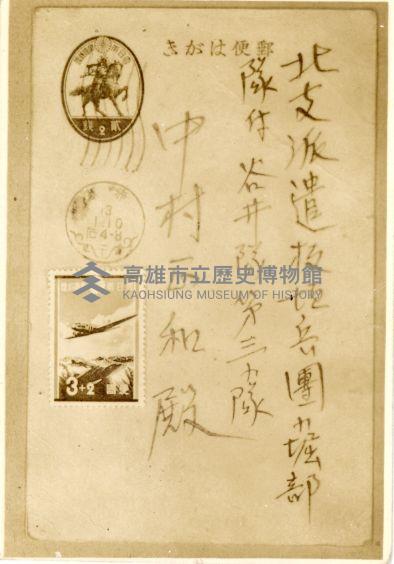 きがは便郵
北支派遣板垣兵團堀部
隊付谷井隊第三小隊
中村正和殿
貳2錢
13
1.10
后4-8
3+2
高雄市立歷史博物館
KAOHSIUNG MUSEUM OF HISTORY